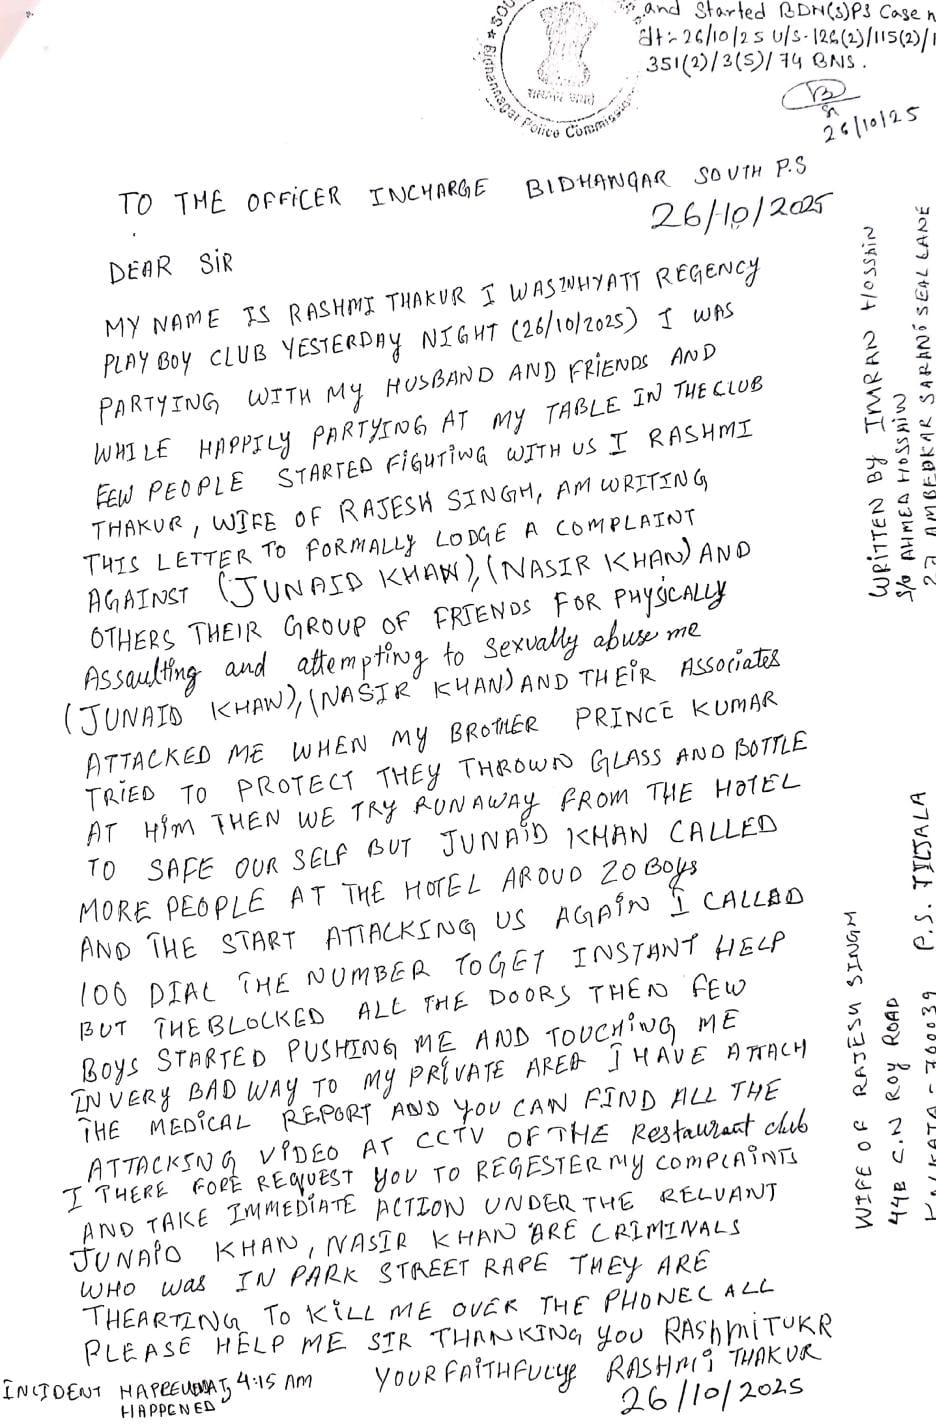 and Started BDN(S)PS Case n
dt:- 26/10/25 U/S- 126(2)/115(2)/1
351(2)/3(5)/74 BNS.
26/10/25
Bidhannagar Police Commiss
TO THE OFFICER INCHARGE BIDHANGAR SOUTH P.S
26/10/2025
DEAR SIR
MY NAME IS RASHMI THAKUR I WAS IN HYATT REGENCY
PLAY BOY CLUB YESTERDAY NIGHT (26/10/2025) I WAS
PARTYING WITH MY HUSBAND AND FRIENDS AND
WHILE HAPPILY PARTYING AT MY TABLE IN THE CLUB
FEW PEOPLE STARTED FIGUTING WITH US I RASHMI
THAKUR, WIFE OF RAJESH SINGH, AM WRITING
THIS LETTER TO FORMALLY LODGE A COMPLAINT
AGAINST (JUNAID KHAN), (NASIR KHAN) AND
OTHERS THEIR GROUP OF FRIENDS FOR PHYSICALLY
Assaulting and attempting to sexually abuse me
(JUNAID KHAN), (NASIR KHAN) AND THEIR Associates
ATTACKED ME WHEN MY BROTHER PRINCE KUMAR
TRIED TO PROTECT THEY THROWN GLASS AND BOTTLE
AT HIM THEN WE TRY RUNAWAY FROM THE HOTEL
TO SAFE OUR SELF BUT JUNAID KHAN CALLED
MORE PEOPLE AT THE HOTEL AROUD 20 BOYS
AND THE START ATTACKING US AGAIN I CALLED
100 DIAL THE NUMBER TO GET INSTANT HELP
BUT THE BLOCKED ALL THE DOORS THEN FEW
BOYS STARTED PUSHING ME AND TOUCHING ME
IN VERY BAD WAY TO MY PRIVATE AREA I HAVE ATTACH
THE MEDICAL REPORT AND YOU CAN FIND ALL THE
ATTACKING VIDEO AT CCTV OF THE Restaurant club
I THERE FORE REQUEST YOU TO REGESTER MY COMPLAINTS
AND TAKE IMMEDIATE ACTION UNDER THE RELUANT
JUNAID KHAN, NASIR KHAN ARE CRIMINALS
WHO was IN PARK STREET RAPE THEY ARE
THEARTING TO KILL ME OVER THE PHONE CALL
PLEASE HELP ME SIR THANKING YOU RASHMI TUKR
YOUR FAITHFULLY RASHMI THAKUR
26/10/2025
INCIDENT 4:15 AM
HAPPENED
WRITTEN BY IMRAN HOSSAIN
S/O AHMED HOSSAIN
27 AMBEDKAR SARANI SEAL LANE
P.S. TILJALA
WIFE OF RAJESH SINGH
44B C.N ROY ROAD
KOLKATA - 700039